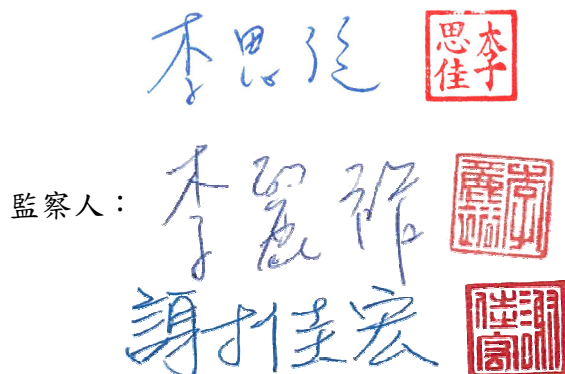 李思佳
李思佳
監察人：
李麗
謝佳宏
謝佳宏